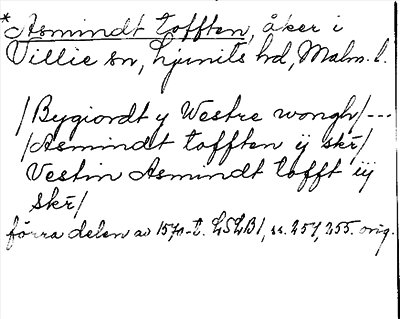 *Asmindt tofften, åker i
Villie sn, Ljunits hd, Malm. l.
/Bygiordt y Westre wongh/---
/Asmindt tofften ÿ skr̄/
Vestin Asmindt tofft iÿ
skr̄/
förra delen av 1570-t. LSLB1, ss. 251, 255. orig.